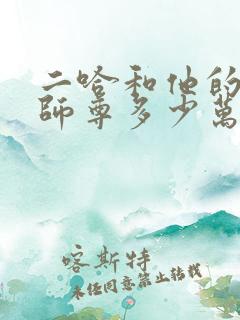 二哈和他的
師尊多少萬
喀斯特
未任同意禁止转载